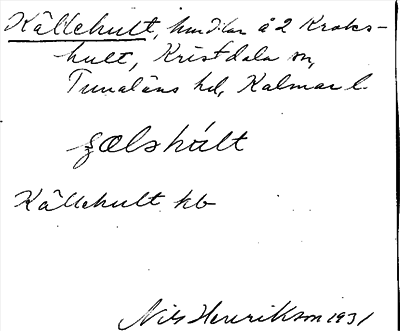 Källehult, å 2 Kroks-
hult, Kristdala sn,
Tunaläns hd, Kalmar l.
Källehult kb
Nils Henrikson 1931